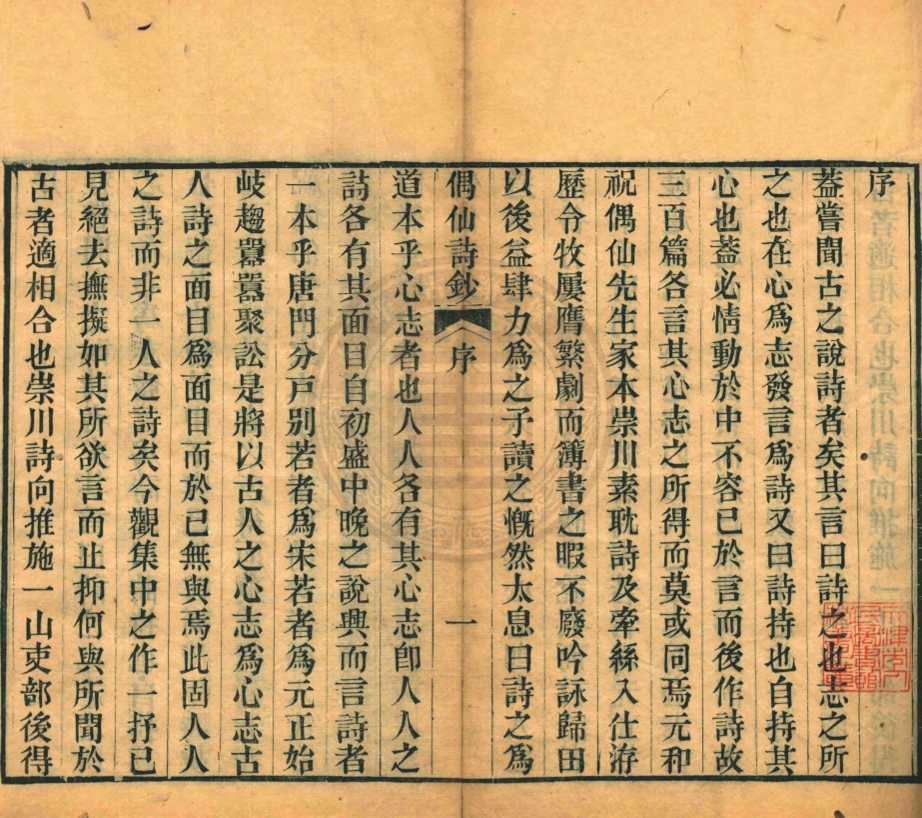 序
葢嘗聞古之說詩者矣其言曰詩之也志之所
之也在心爲志發言爲詩又曰詩持也自持其
心也葢必情動於中不容已於言而後作詩故
三百篇各言其心志之所得而莫或同焉元和
祝偶仙先生家本崇川素耽詩及牽絲入仕洊
歷令牧屢膺繁劇而簿書之暇不廢吟詠歸田
以後益肆力爲之予讀之慨然太息曰詩之爲
偶仙詩鈔 序 一
道本乎心志者也人人各有其心志卽人人之
詩各有其面目自初盛中晚之說興而言詩者
一本乎唐門分戸別若者爲宋若者爲元正始
岐趨囂囂聚訟是將以古人之心志爲心志古
人詩之面目爲面目而於已無與焉此固人人
之詩而非一人之詩矣今觀集中之作一抒已
見絕去撫擬如其所欲言而止抑何與所聞於
古者適相合也崇川詩向推施一山吏部後得